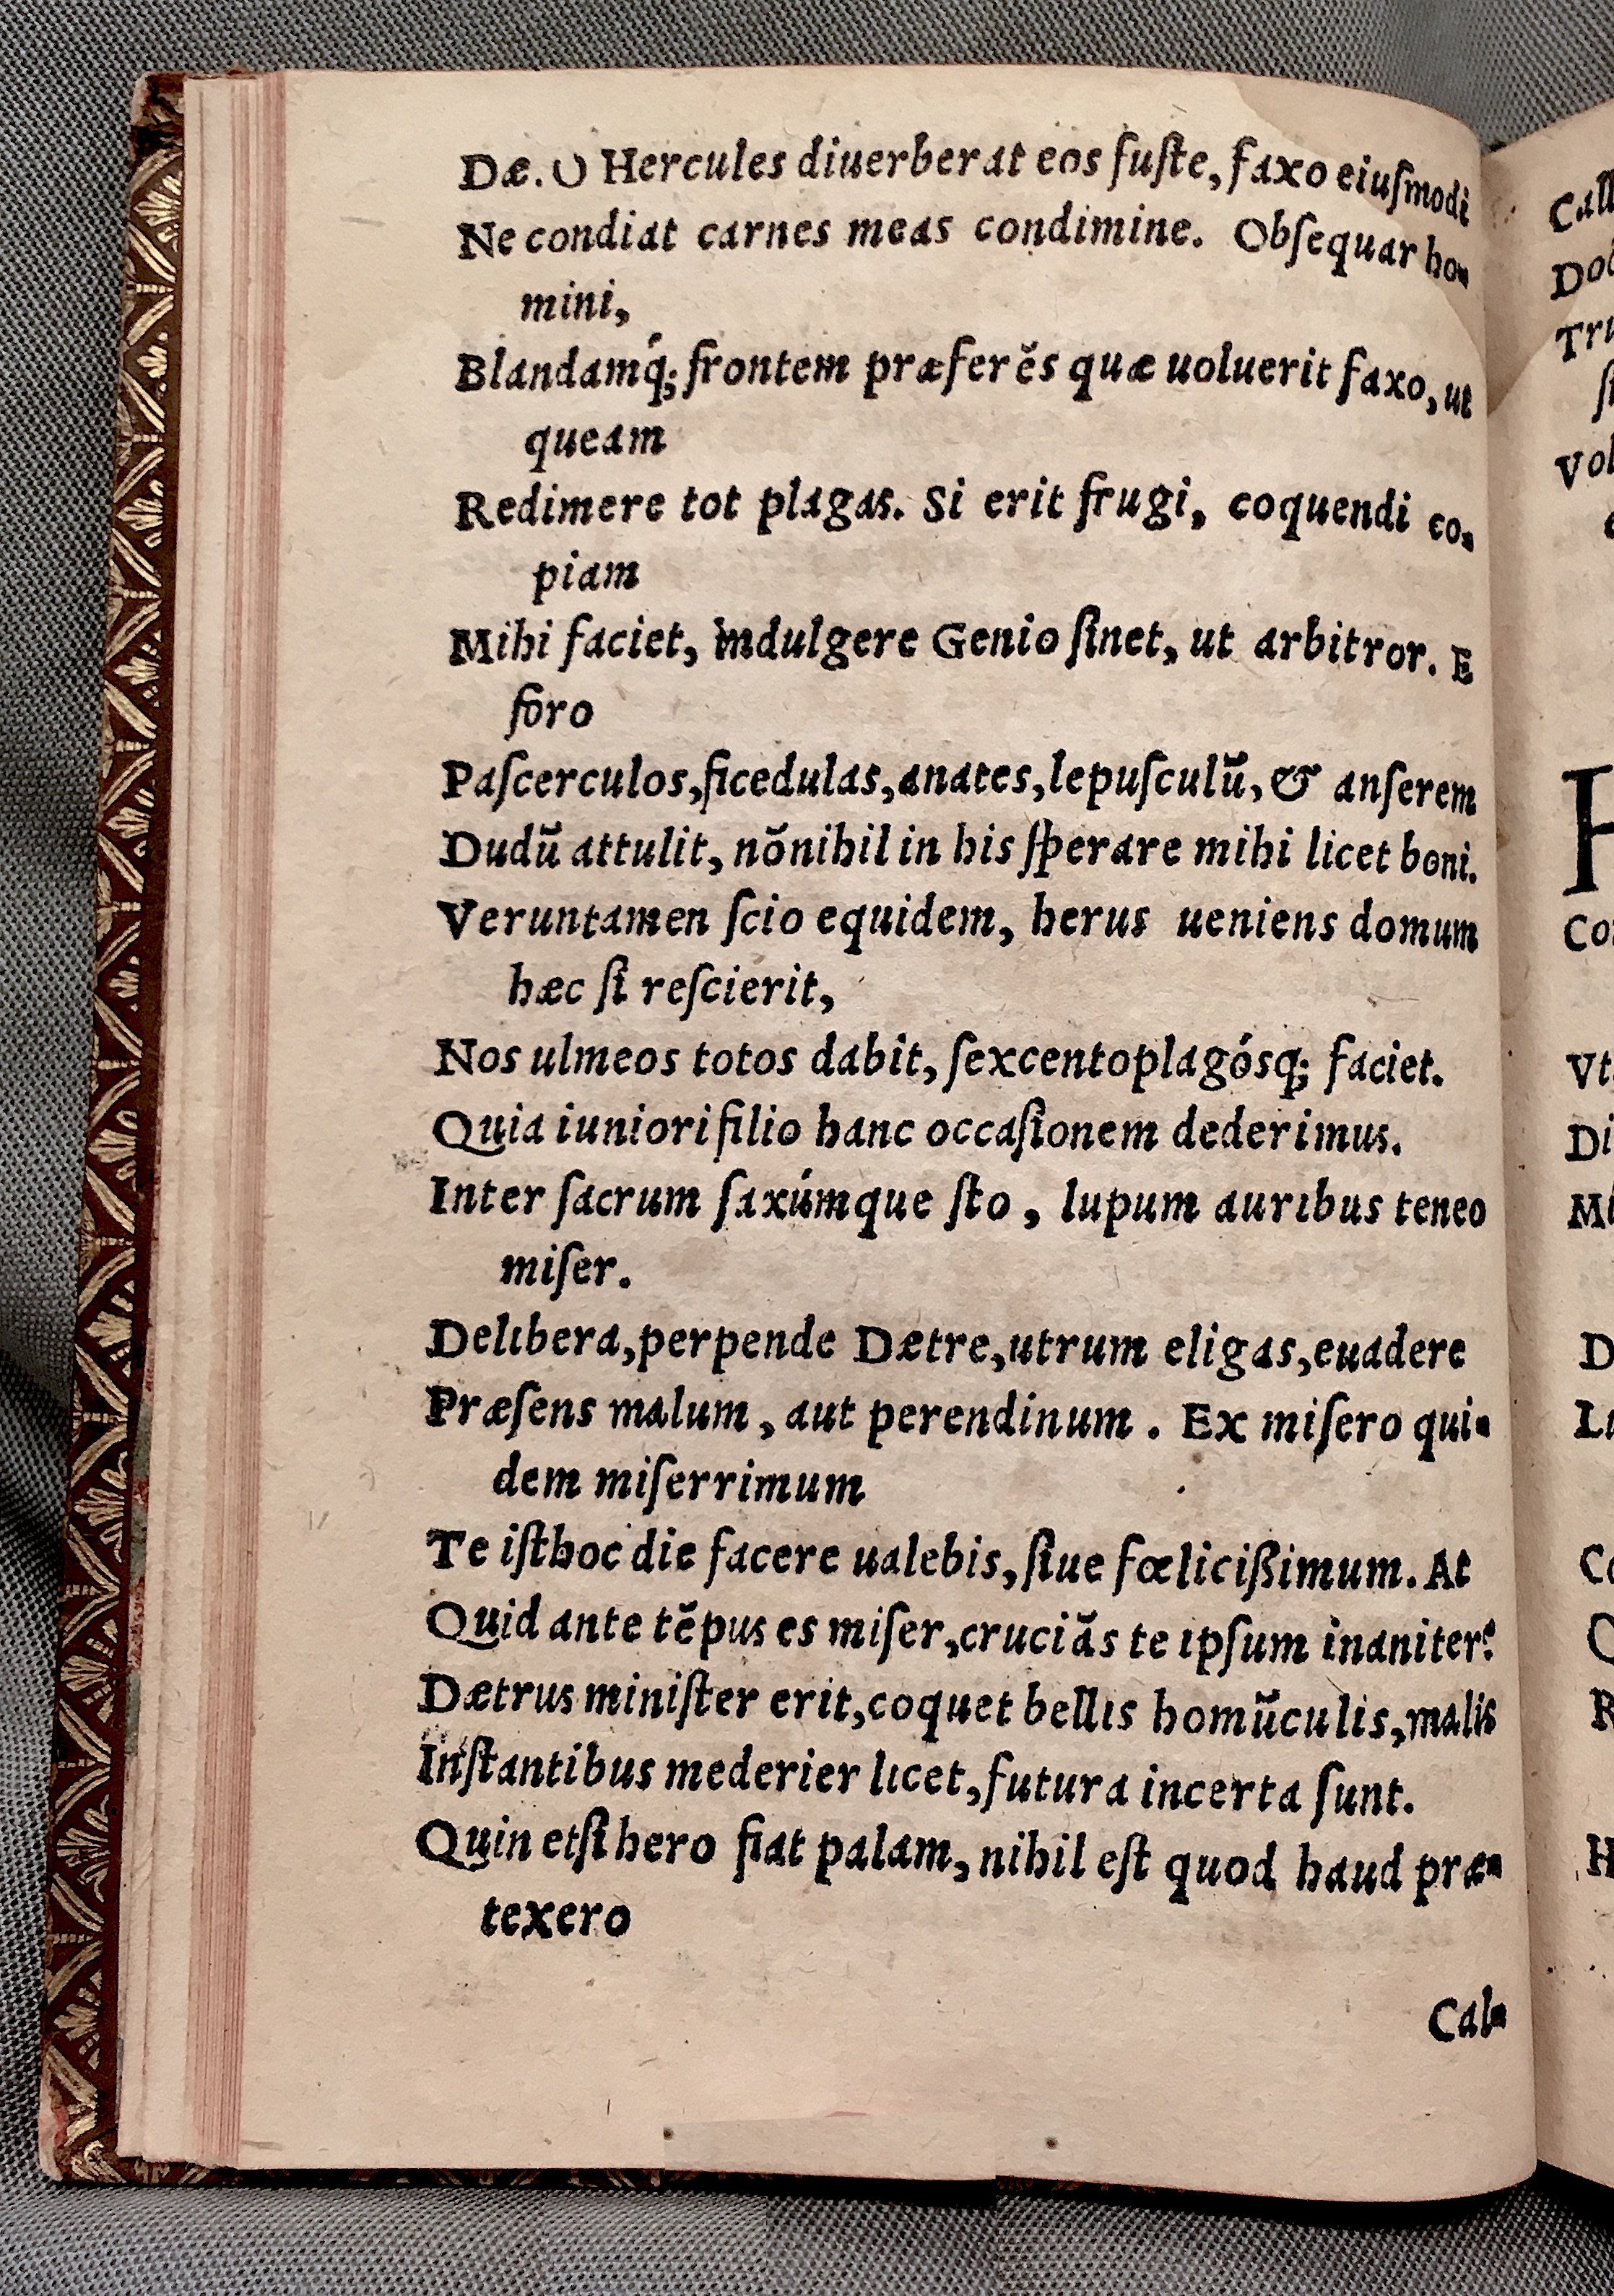 Dæ. O Hercules diuerberat eos fuſte, faxo eiuſmodi
Ne condiat carnes meas condimine. Obſequar ho-
mini,
Blandamq́; frontem præferẽs quæ uoluerit faxo, ut
queam
Redimere tot plagas. Si erit frugi, coquendi co-
piam
Mihi faciet, indulgere Genio ſinet, ut arbitror. E
foro
Paſcerculos, ficedulas, anates, lepuſculũ, & anſerem
Dudũ attulit, nõnihil in his ſperare mihi licet boni.
Veruntamen ſcio equidem, herus ueniens domum
hæc ſi reſcierit,
Nos ulmeos totos dabit, ſexcentoplagósq; faciet.
Quia iuniori filio hanc occaſionem dederimus.
Inter ſacrum ſaxúmque ſto, lupum auribus teneo
miſer.
Delibera, perpende Dætre, utrum eligas, euadere
Præſens malum, aut perendinum. Ex miſero qui-
dem miſerrimum
Te iſthoc die facere ualebis, ſiue fœlicißimum. At
Quid ante tẽpus es miſer, cruciãs te ipſum inaniter?
Dætrus miniſter erit, coquet bellis homũculis, malis
Inſtantibus mederier licet, futura incerta ſunt.
Quin etſi hero fiat palam, nihil eſt quod haud præ-
texero
Cal-